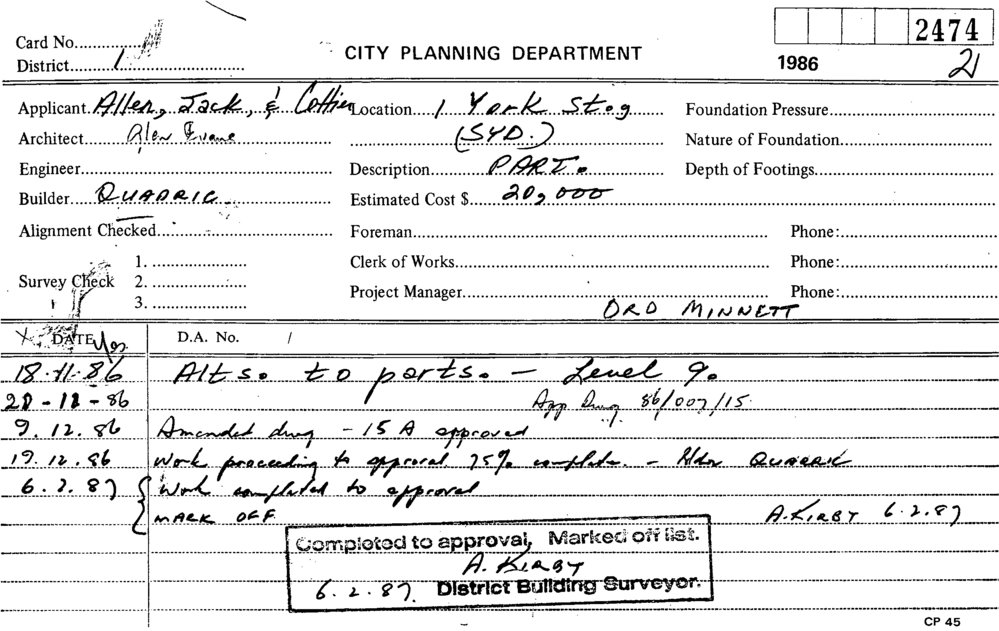 2474
Card No.
CITY PLANNING DEPARTMENT
1986
21
District 1
Applicant Allen, Jack, & Cottier Location 1 York St. Foundation Pressure
Architect Glen Evans (SYD.) Nature of Foundation
Engineer Description PART. Depth of Footings
Builder QUADRIC Estimated Cost $ 20,000
Alignment Checked Foreman Phone:
1. Clerk of Works Phone:
Survey Check 2.
Project Manager Phone:
3.
ORD MINNETT
X DATE Yes D.A. No. /
18-11-86 Alts. to parts. - Level 9.
21-11-86 App Drwg 86/007/15
9.12.86 Amended drwg - 15 A approved
19.12.86 Work proceeding to approval 75% complete. - Bldr QUADRIC
6.2.87 Work completed to approval
MARK OFF A. KIRBY 6.2.87
Completed to approval, Marked off list.
A. KIRBY
6.2.87. District Building Surveyor.
CP 45